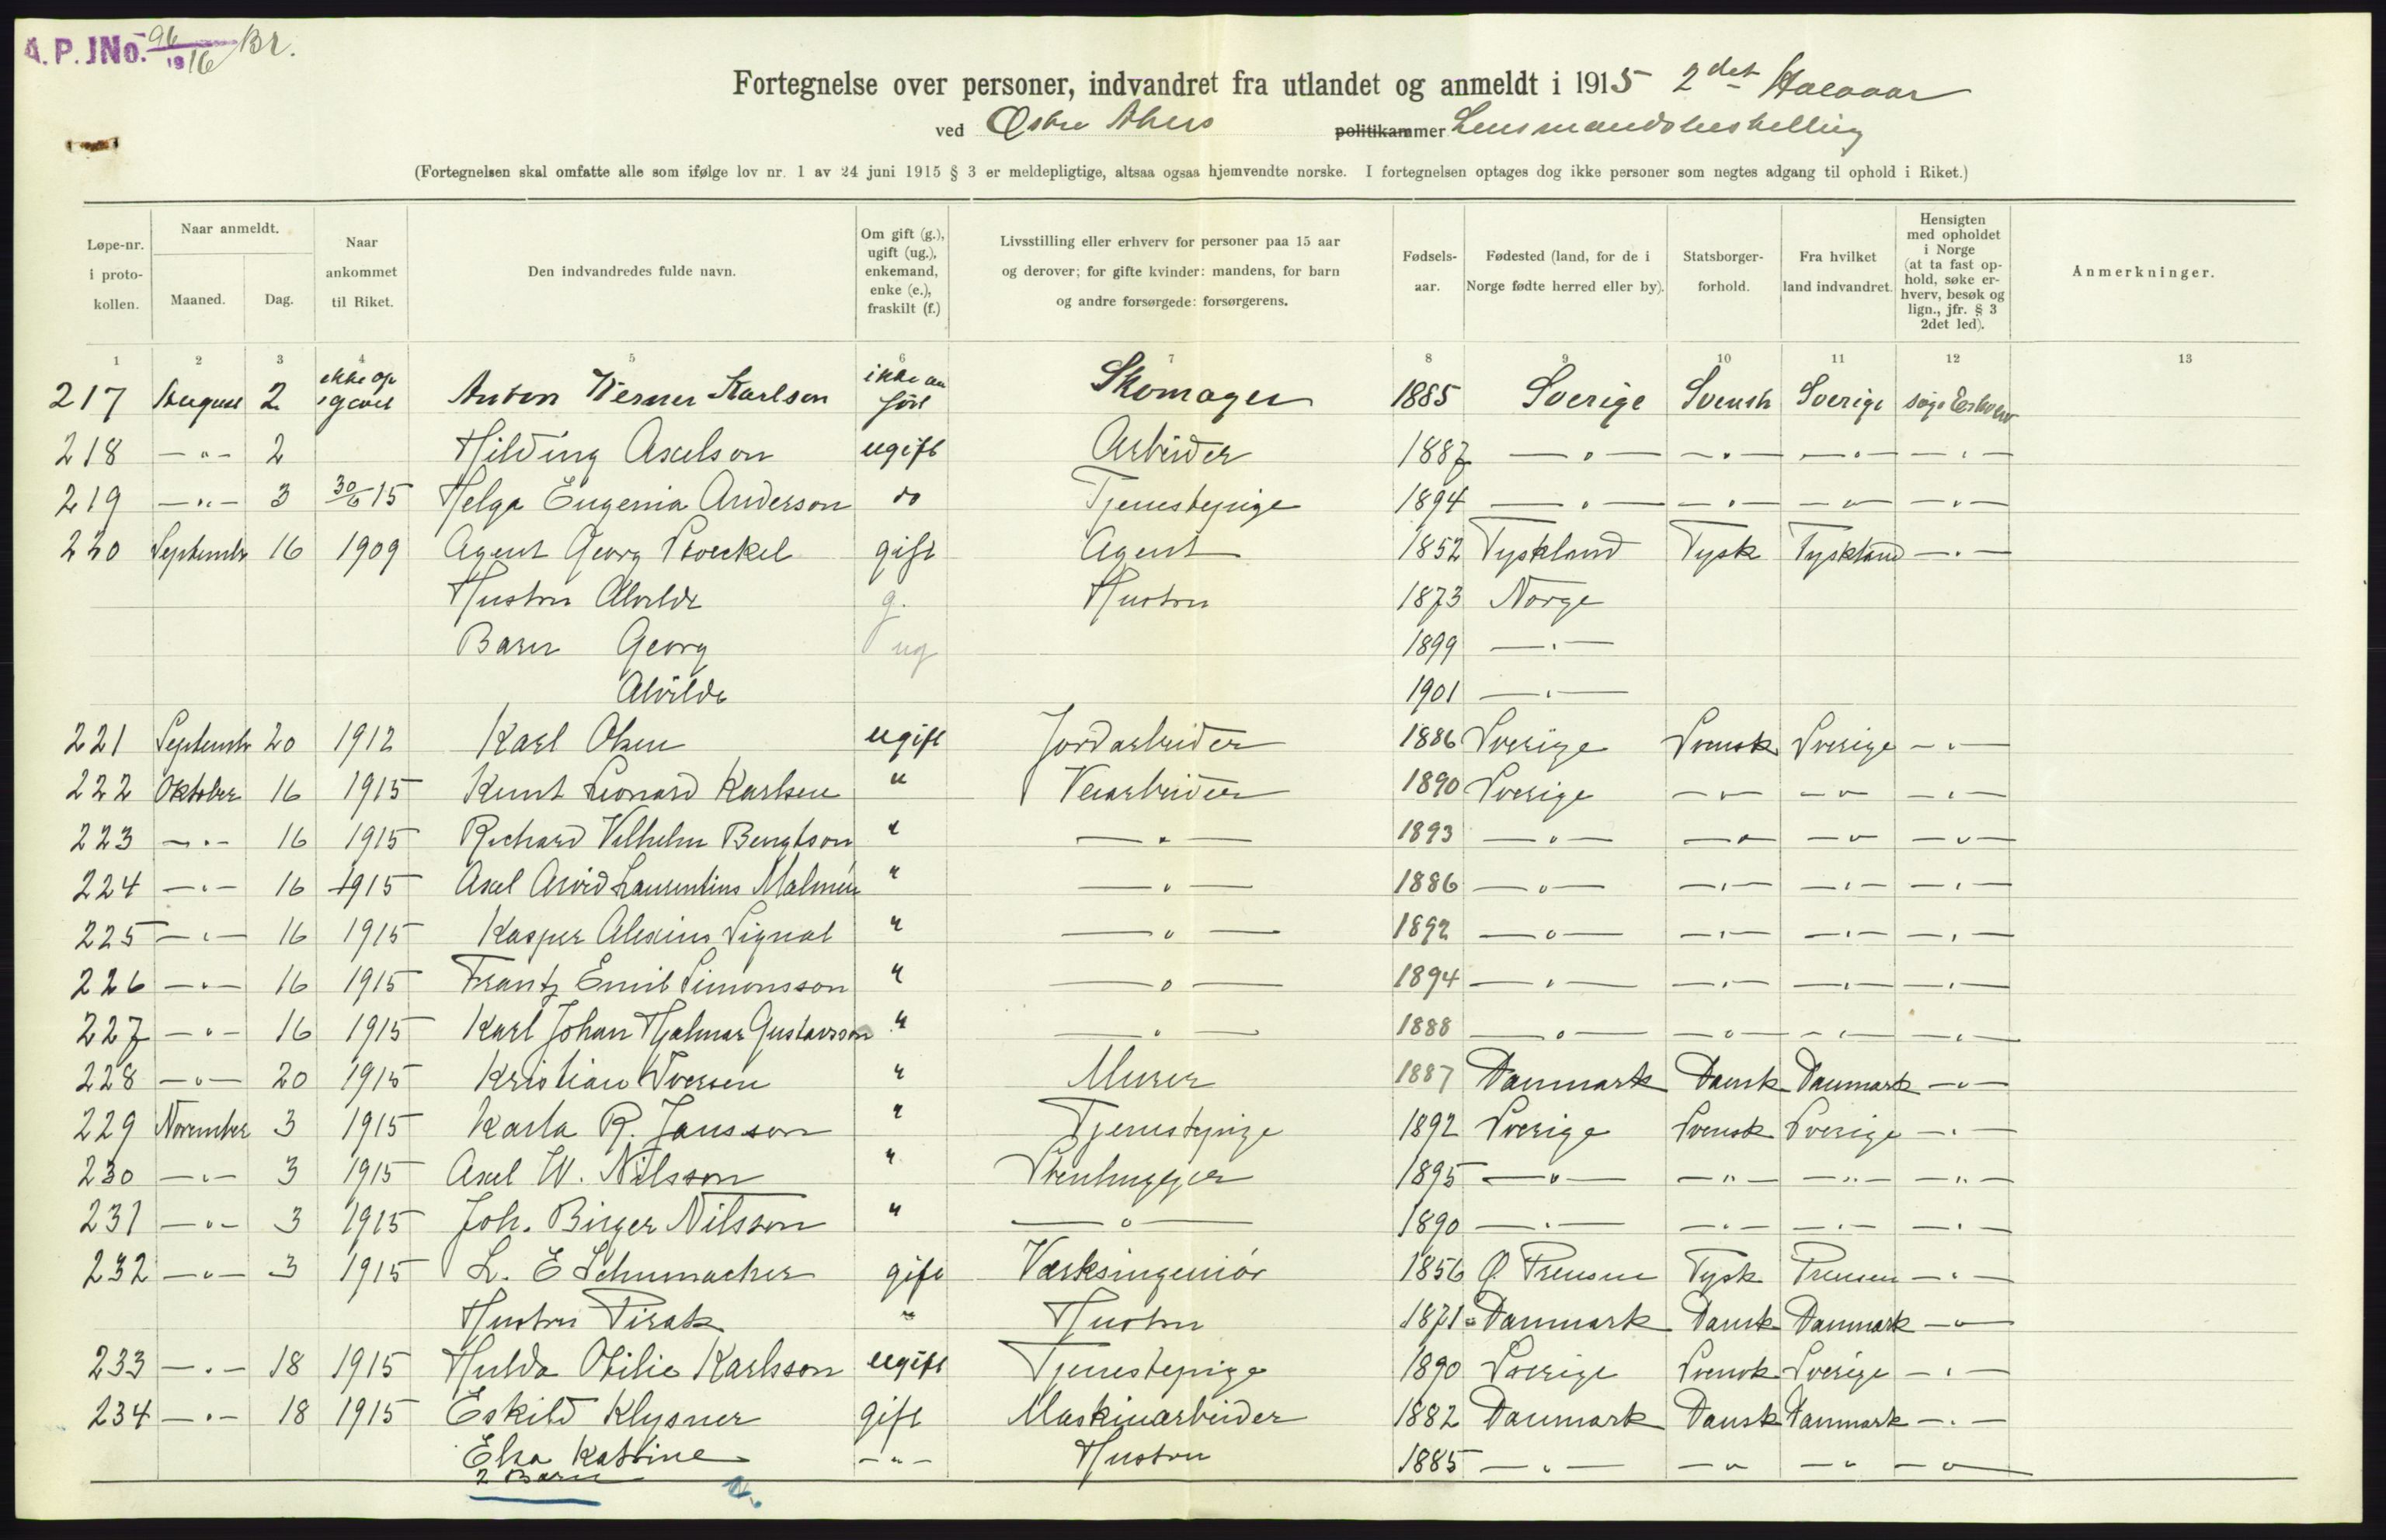 A. P. JNo. 96/1916 Br.
Fortegnelse over personer, indvandret fra utlandet og anmeldt i 1915 2det Halvaar
ved Østre Akers politikammer Lensmandsbestilling
(Fortegnelsen skal omfatte alle som ifølge lov nr. 1 av 24 juni 1915 § 3 er meldepligtige, altsaa ogsaa hjemvendte norske. I fortegnelsen optages dog ikke personer som negtes adgang til ophold i Riket.)
Løpe-nr. i proto-kollen. Naar anmeldt. Maaned. Dag. Naar ankommet til Riket. Den indvandredes fulde navn. Om gift (g.), ugift (ug.), enkemand, enke (e.), fraskilt (f.) Livsstilling eller erhverv for personer paa 15 aar og derover; for gifte kvinder: mandens, for barn og andre forsørgede: forsørgerens. Fødsels-aar. Fødested (land, for de i Norge fødte herred eller by). Statsborger-forhold. Fra hvilket land indvandret. Hensigten med opholdet i Norge (at ta fast op-hold, søke er-hverv, besøk og lign., jfr. § 3 2det led). Anmerkninger.
1 2 3 4 5 6 7 8 9 10 11 12 13
217 August 2 ikke op-givet Anton Werner Karlson ikke an-ført Skomager 1885 Sverige Svensk Sverige søge Erhverv
218 -"- 2 Hilding Axelson ugift Arbeider 1887 -"- -"- -"- -"-
219 -"- 3 30/6 15 Helga Eugenia Anderson do Tjenestepige 1894 -"- -"- -"- -"-
220 Septembr 16 1909 Agent Georg Stoeckel gift Agent 1852 Tyskland Tysk Tyskland -"-
Hustru Alvilde g. Hustru 1873 Norge
Barn Georg ug 1899 -"-
Alvilde 1901 -"-
221 Septembr 20 1912 Karl Olsen ugift Jordarbeider 1886 Sverige Svensk Sverige -"-
222 Oktober 16 1915 Knut Leonard Karlsen " Veiarbeider 1890 Sverige -"- -"- -"-
223 -"- 16 1915 Richard Vilhelm Bengtson " -"- 1893 -"- -"- -"- -"-
224 -"- 16 1915 Axel Arvid Laurentius Malmén " -"- 1886 -"- -"- -"- -"-
225 -"- 16 1915 Kasper Alexius Signal " -"- 1892 -"- -"- -"- -"-
226 -"- 16 1915 Frantz Emil Simonsson " -"- 1894 -"- -"- -"- -"-
227 -"- 16 1915 Karl Johan Hjalmar Gustavsson " -"- 1888 -"- -"- -"- -"-
228 -"- 20 1915 Kristian Iversen " Murer 1887 Danmark Dansk Danmark -"-
229 November 3 1915 Karla R. Jansson " Tjenestepige 1892 Sverige Svensk Sverige -"-
230 -"- 3 1915 Axel W. Nilsson " Stenhugger 1895 -"- -"- -"- -"-
231 -"- 3 1915 Joh. Birger Nilsson " -"- 1890 -"- -"- -"- -"-
232 -"- 3 1915 L. E Schumacher gift Værksingeniør 1856 Ø. Preusen Tysk Preusen -"-
Hustru Pirak " Hustru 1871 Danmark Dansk Danmark -"-
233 -"- 18 1915 Hulda Otilie Karlsson ugift Tjenestepige 1890 Sverige Svensk Sverige -"-
234 -"- 18 1915 Eskild Klysner gift Maskinarbeider 1882 Danmark Dansk Danmark -"-
Elna Katrine -"- Hustru 1885 -"- -"- -"- -"-
2 Barn